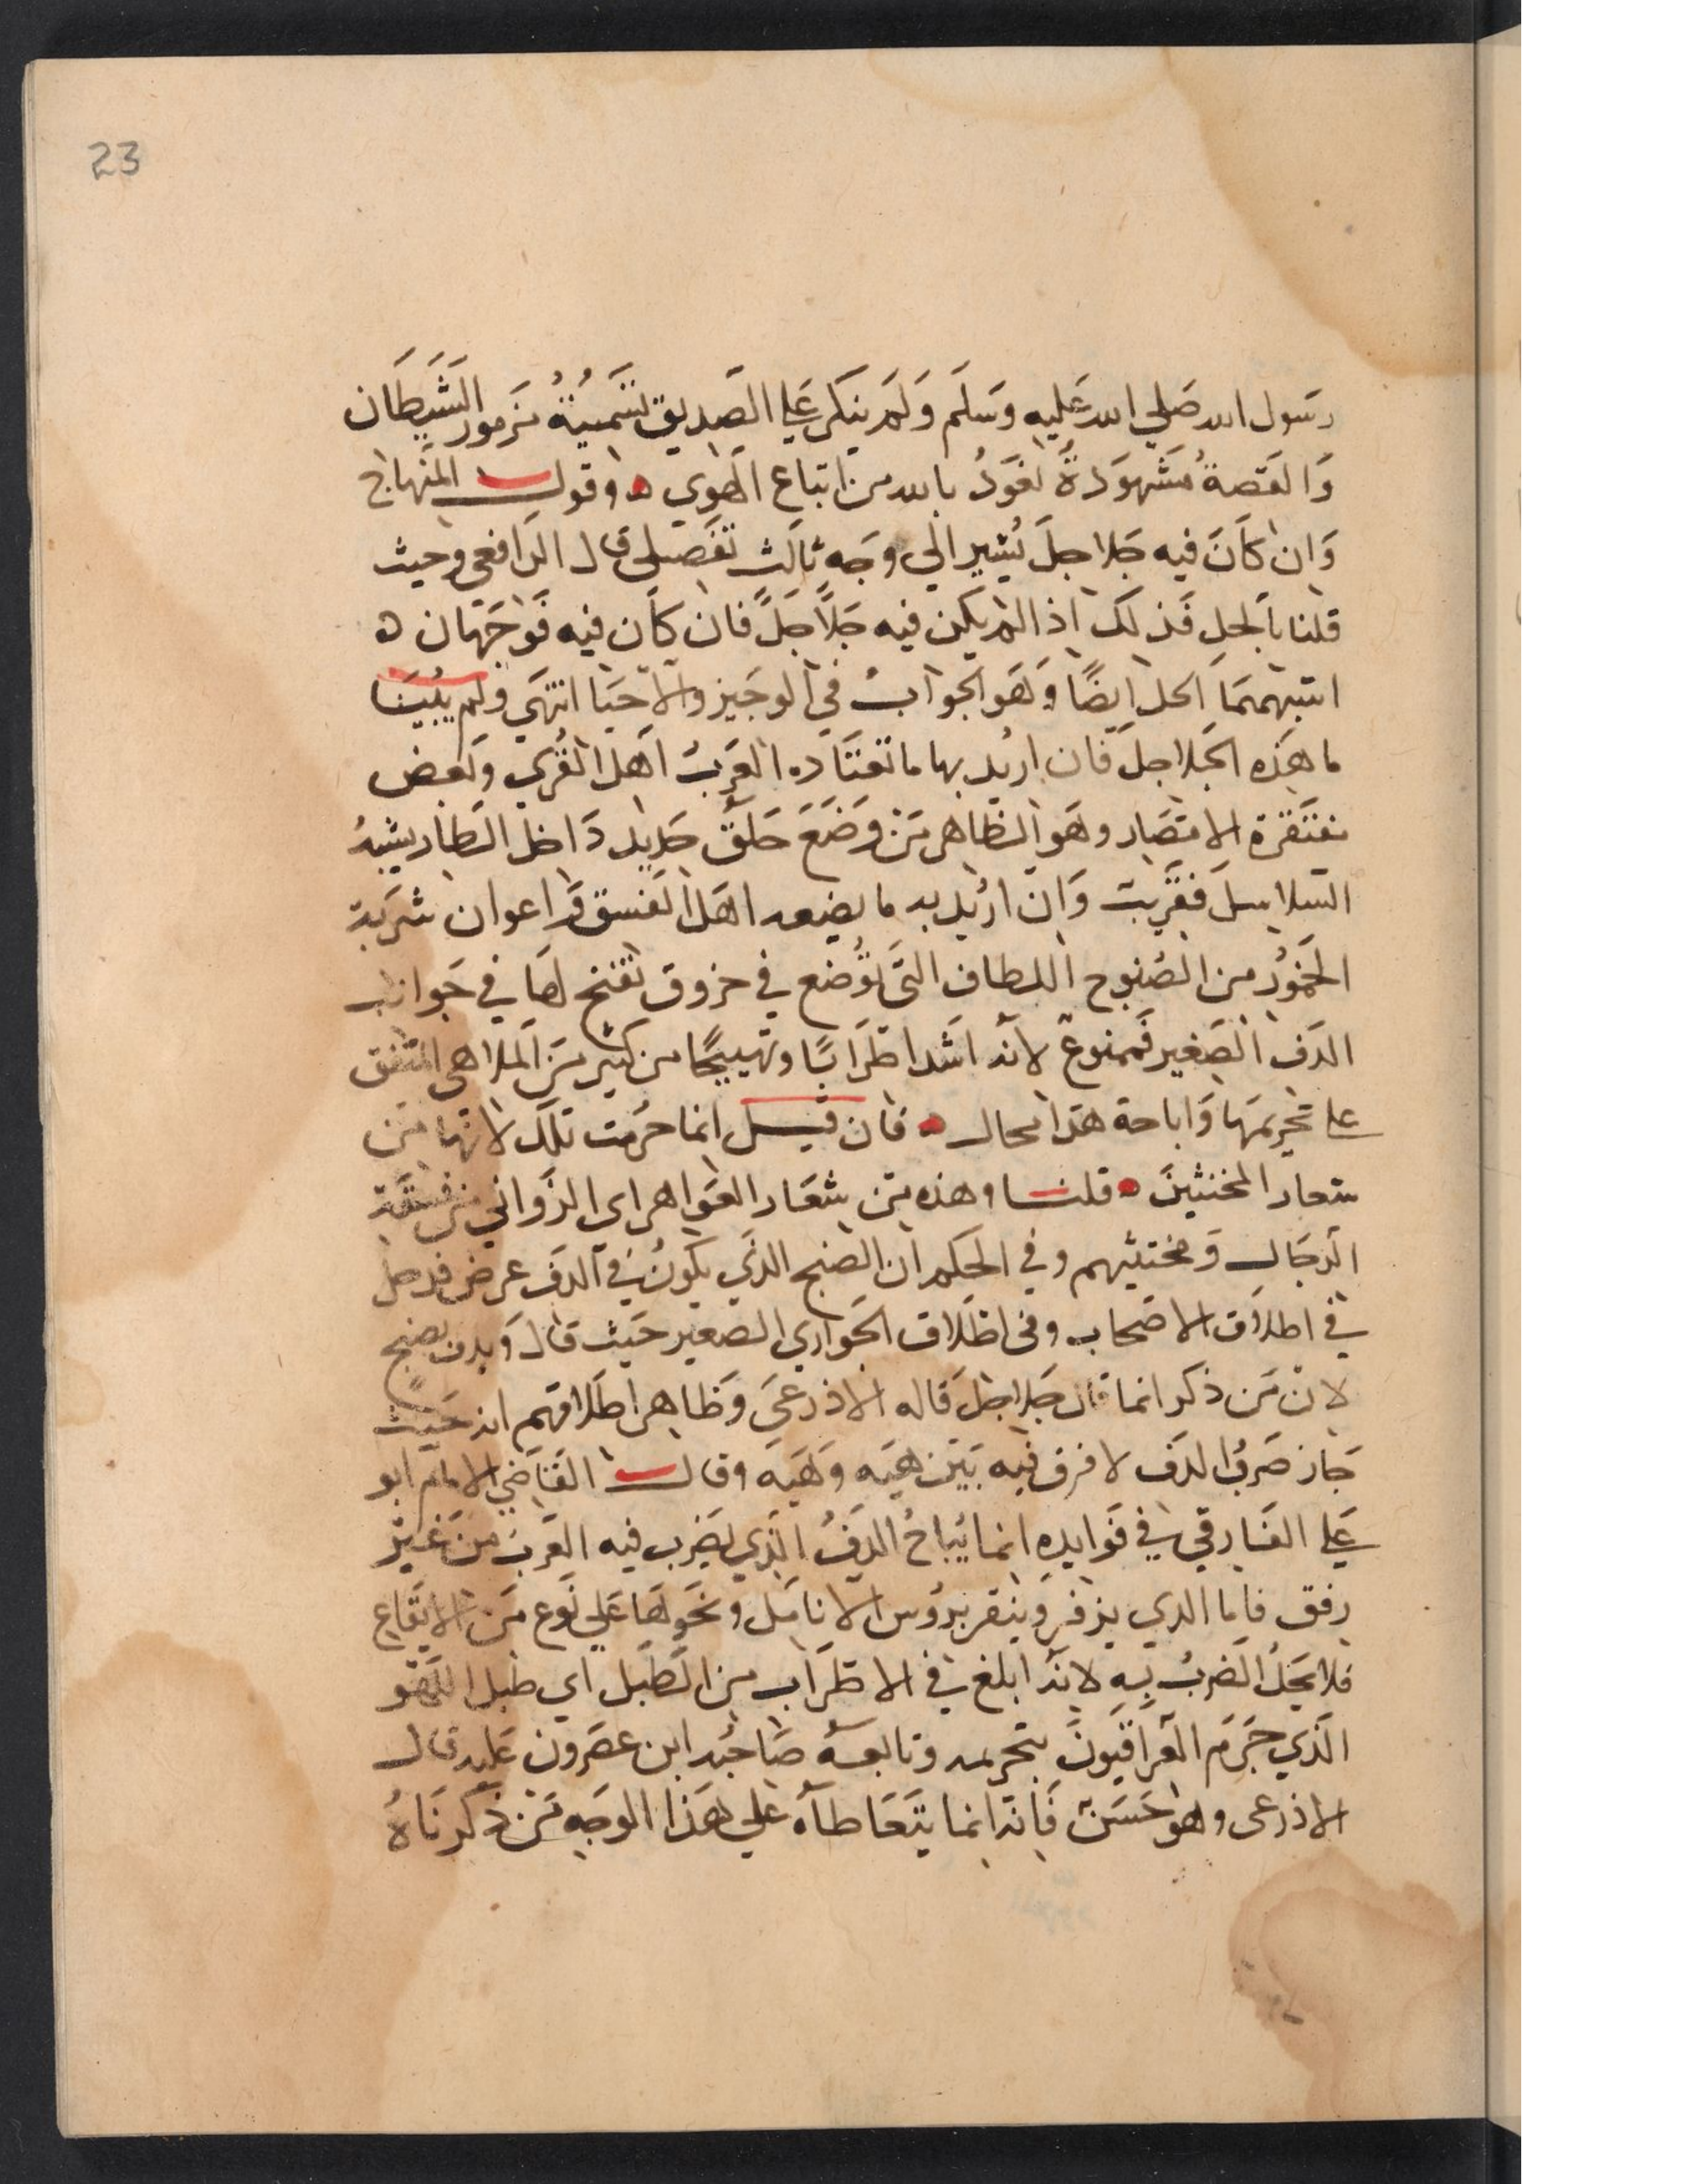 23
رسول الله صلي الله عليه وسلم ولم ينكر علي الصديق تسميته مزمور الشيطان
والقصة مشهودة نعود بالله من اتباع الهوي ه وقول المنهاج
وان كان فيه جلاجل يشير الي وجه ثالث تفصيلي قال الرافعي وحيث
قلنا بالحل فذلك اذا لم يكن فيه جلاجل فان كان فيه فوجهان ه
اشبههما الحل ايضا وهو الجواب في الوجيز والاحيا انتهي ولم يبينا
ما هذه الجلاجل فان اريد بها ما تعتاده العرب اهل القري وبعض
الامصار وهو الظاهر من وضع حلق حديد داخل الطار يشبه
السلاسل فقريب وان اريد به ما يضعه اهل الفسق واعوان شربة
الخمور من الصنوج اللطاف التي توضع في خروق تفتح لها في جوانب
الدف الصغير فممنوع لانه اشد اطرابا وتهييجا من كثير من الملاهي المتفق
علي تحريمها واباحة هذا محال ه فان قيل انما حرمت تلك لانها من
شعار المخنثين ه قلنا وهذه من شعار العواهر اي الزواني من فسقة
الرجال ومخنثيهم وفي الحكم ان الصنج الذي يكون في الدف عرض فدخل
في اطلاق الاصحاب وفي اطلاق الحواري الصغير حيث قال وبدف بصنج
لان من ذكر انما قال جلاجل قاله الاذرعي وظاهر اطلاقهم انه حيث
جاز ضرب الدف لا فرق فيه بين هيه وهيه وقال القاضي الامام ابو
علي الفارقي في فوايده انما يباح الدف الذي يضرب فيه العرب من غير
زفق فاما الذي يزفر وينقر بروس الانامل ونحوها علي نوع من الايقاع
فلا يحل الضرب به لانه ابلغ في الاطراب من الطبل اي طبل اللهو
الذي جزم العراقيون بتحريمه وتابعه صاحبه ابن عصرون عليه قال
الاذرعي وهو حسن فانه انما يتعاطاه علي هذا الوجه من ذكرناه